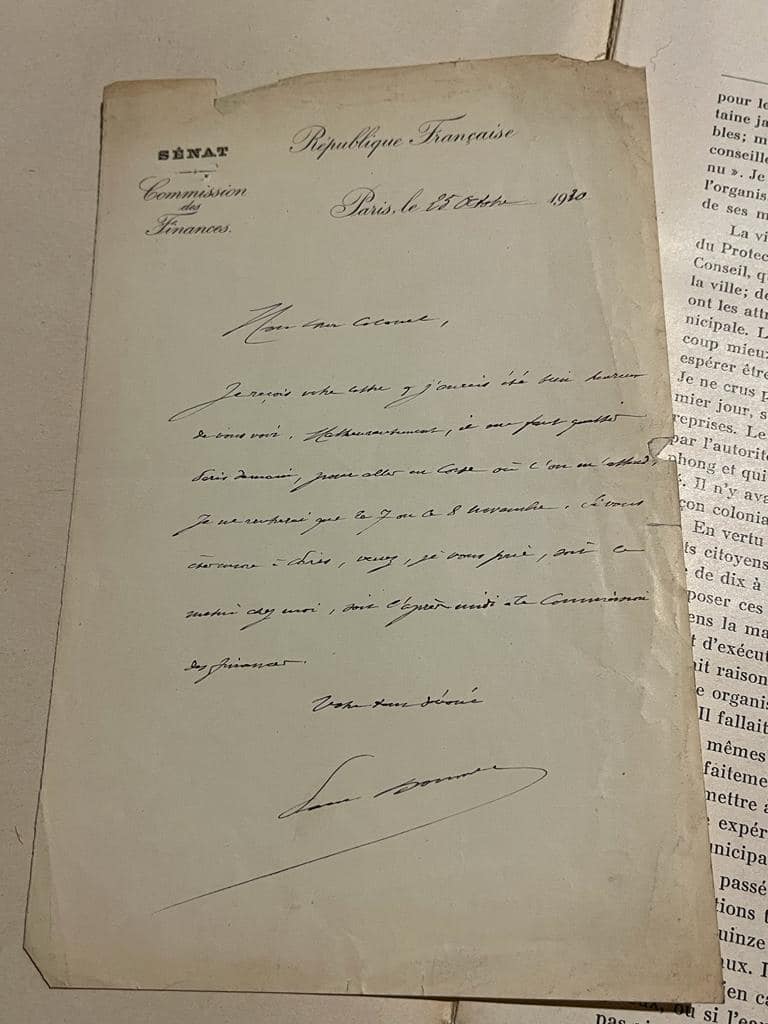 SÉNAT
Commission
des
Finances.
République Française
Paris, le 25 Octobre 1920
Mon cher Colonel,
Je reçois votre lettre et j'aurais été bien heureux
de vous voir. Malheureusement, il me faut quitter
Paris demain, pour aller en Corse où l'on m'attend.
Je ne rentrerai que le 7 ou le 8 novembre. Si vous
êtes encore à Paris, venez, je vous prie, soit le
matin chez moi, soit l'après midi à la Commission
des finances.
Votre tout dévoué
Paul Doumer
pour le
taine ja
bles; m
conseille
nu ». Je
l'organis
de ses m
La vi
du Protec
Conseil, q
la ville; de
ont les attr
nicipale. L
coup mieux
espérer être
Je ne crus p
mier jour, s
reprises. Le
par l'autorité
phong et qui
. Il n'y ava
çon colonia
En vertu
ts citoyens
de dix à
poser ces
ens la ma
t d'exécut
ait raison
e organis
Il fallait
mêmes
faiteme
mettre a
expér
unicipa
passé
tions t
uinze
aux. I
en ca
ou si l'ea
pas